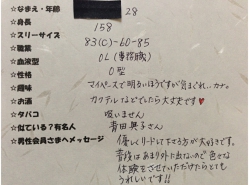 ☆なまえ・年齢 28
☆身長 158
☆スリーサイズ 83(C)-60-85
☆職業 OL(事務職)
☆血液型 O型
☆性格 マイペースで明るいほうですが気まぐれ、カナ。
☆趣味
☆お酒 カクテルなどでしたら大丈夫です♥
☆タバコ 吸いません
☆似ている?有名人 青田典子さん
☆男性会員さまへメッセージ 優しくリードして下さる方が大好きです。
普段はあまり外に出ないので色々な
体験をさせていただけたらとても
うれしいです!!